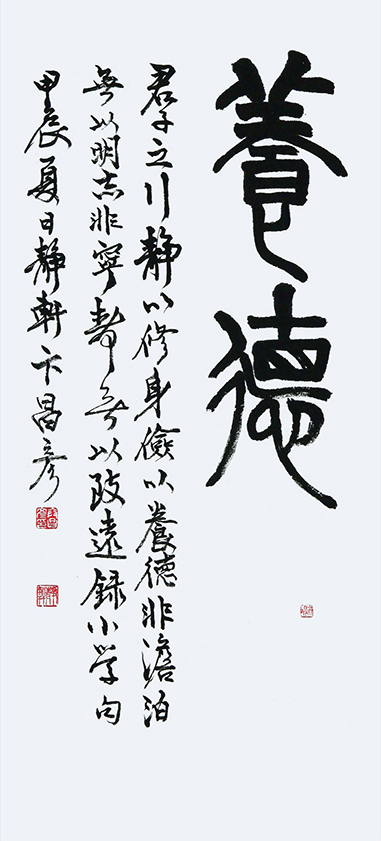 養德
君子之行靜以修身儉以養德非澹泊
無以明志非寧靜無以致遠錄小學句
甲辰夏日靜軒卞昌彥